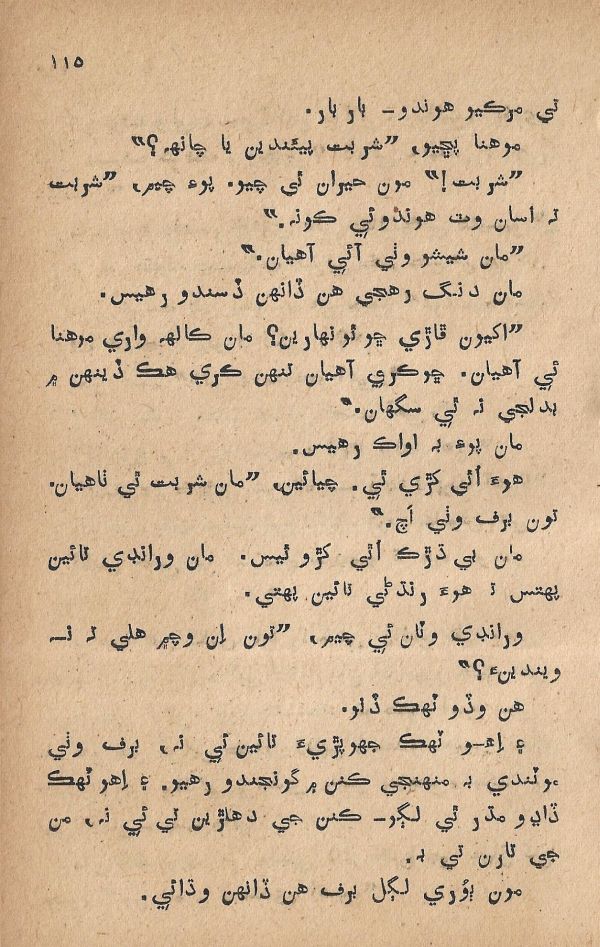 ١١٥
ٿي مرڪيو هوندو ـ بار بار.
موهنا پڇيو، ”شربت پيئندين يا چانهه؟“
”شربت!“ مون حيران ٿي چيو. پوءِ چيم، ”شربت
ته اسان وٽ هوندوئي ڪونه.“
”مان شيشو وٺي آئي آهيان.“
مان دنگ رهجي هن ڏانهن ڏسندو رهيس.
”اکيون ڦاڙي ڇو ٿو نهارين؟ مان ڪالهه واري موهنا
ئي آهيان. ڇوڪري آهيان تنهن ڪري هڪ ڏينهن ۾
بدلجي ته ٿي سگهان.“
مان پوءِ به اواڪ رهيس.
هوءَ اُٿي کڙي ٿي. چيائين، ”مان شربت ٿي ٺاهيان.
تون برف وٺي اَچ.“
مان بي ڌڙڪ اُٿي کڙو ٿيس. مان ورانڊي تائين
پهتس ۽ هوءَ رنڌڻي تائين پهتي.
ورانڊي وٽان ئي چيم، ”تون اِن وچ ۾ هلي ته نـ
ويندينءَ؟“
هن وڏو ٽهڪ ڏنو.
۽ اِهـو ٽهڪ جهوپڙيءَ تائين ئي نه، برف وٺي
موٽندي به منهنجي ڪنن ۾ گونجندو رهيو. ۽ اِهو ٽهڪ
ڏاڍو مڌر ٿي لڳو ـ ڪنن جي دهلڙين تي ئي نه، من
جي تارن تي به.
مون ٻُوري لڳل برف هن ڏانهن وڌائي.